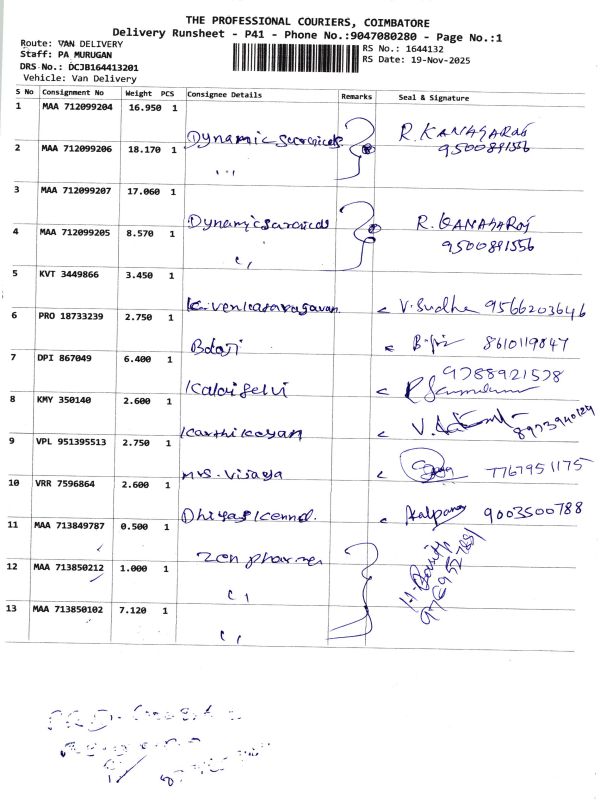 THE PROFESSIONAL COURIERS, COIMBATORE
Delivery Runsheet - P41 - Phone No.:9047080280 - Page No.:1
Route: VAN DELIVERY
Staff: PA MURUGAN
DRS No.: DCJB164413201
Vehicle: Van Delivery
RS No.: 1644132
RS Date: 19-Nov-2025
S No Consignment No Weight PCS Consignee Details Remarks Seal & Signature
1 MAA 712099204 16.950 1 Dynamic R. KANAGARAJ
9500891556
2 MAA 712099206 18.170 1 ,,
3 MAA 712099207 17.060 1 Dynamic R. KANAGARAJ
9500891556
4 MAA 712099205 8.570 1 ,,
5 KVT 3449866 3.450 1 K. venkataragavan V. Sudha 9566203646
6 PRO 18733239 2.750 1 Balaji 8610119847
7 DPI 867049 6.400 1 Kalaiselvi 9788921578
8 KMY 350140 2.600 1 Karthikeyan
9 VPL 951395513 2.750 1 Mrs. Vijaya 7767951175
10 VRR 7596864 2.600 1 Kalpana 9003500788
11 MAA 713849787 0.500 1 Zen pharma
12 MAA 713850212 1.000 1 ,,
13 MAA 713850102 7.120 1 ,,